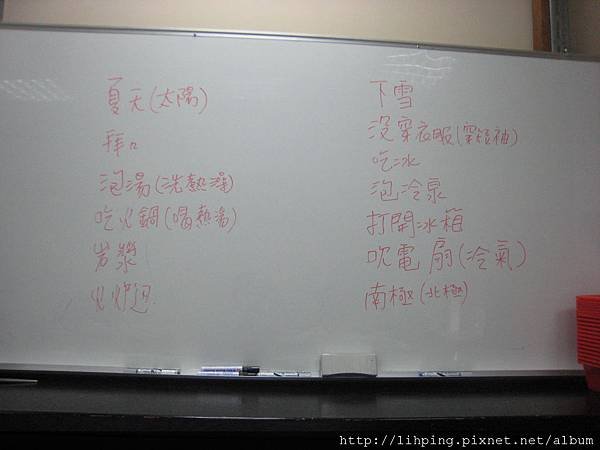 夏天(太陽)
拜拜
泡湯(洗熱澡)
吃火鍋(喝熱湯)
岩漿
火爐邊
下雪
沒穿衣服(穿短袖)
吃冰
泡冷泉
打開冰箱
吹電扇(冷氣)
南極(北極)
http://lihping.pixnet.net/album